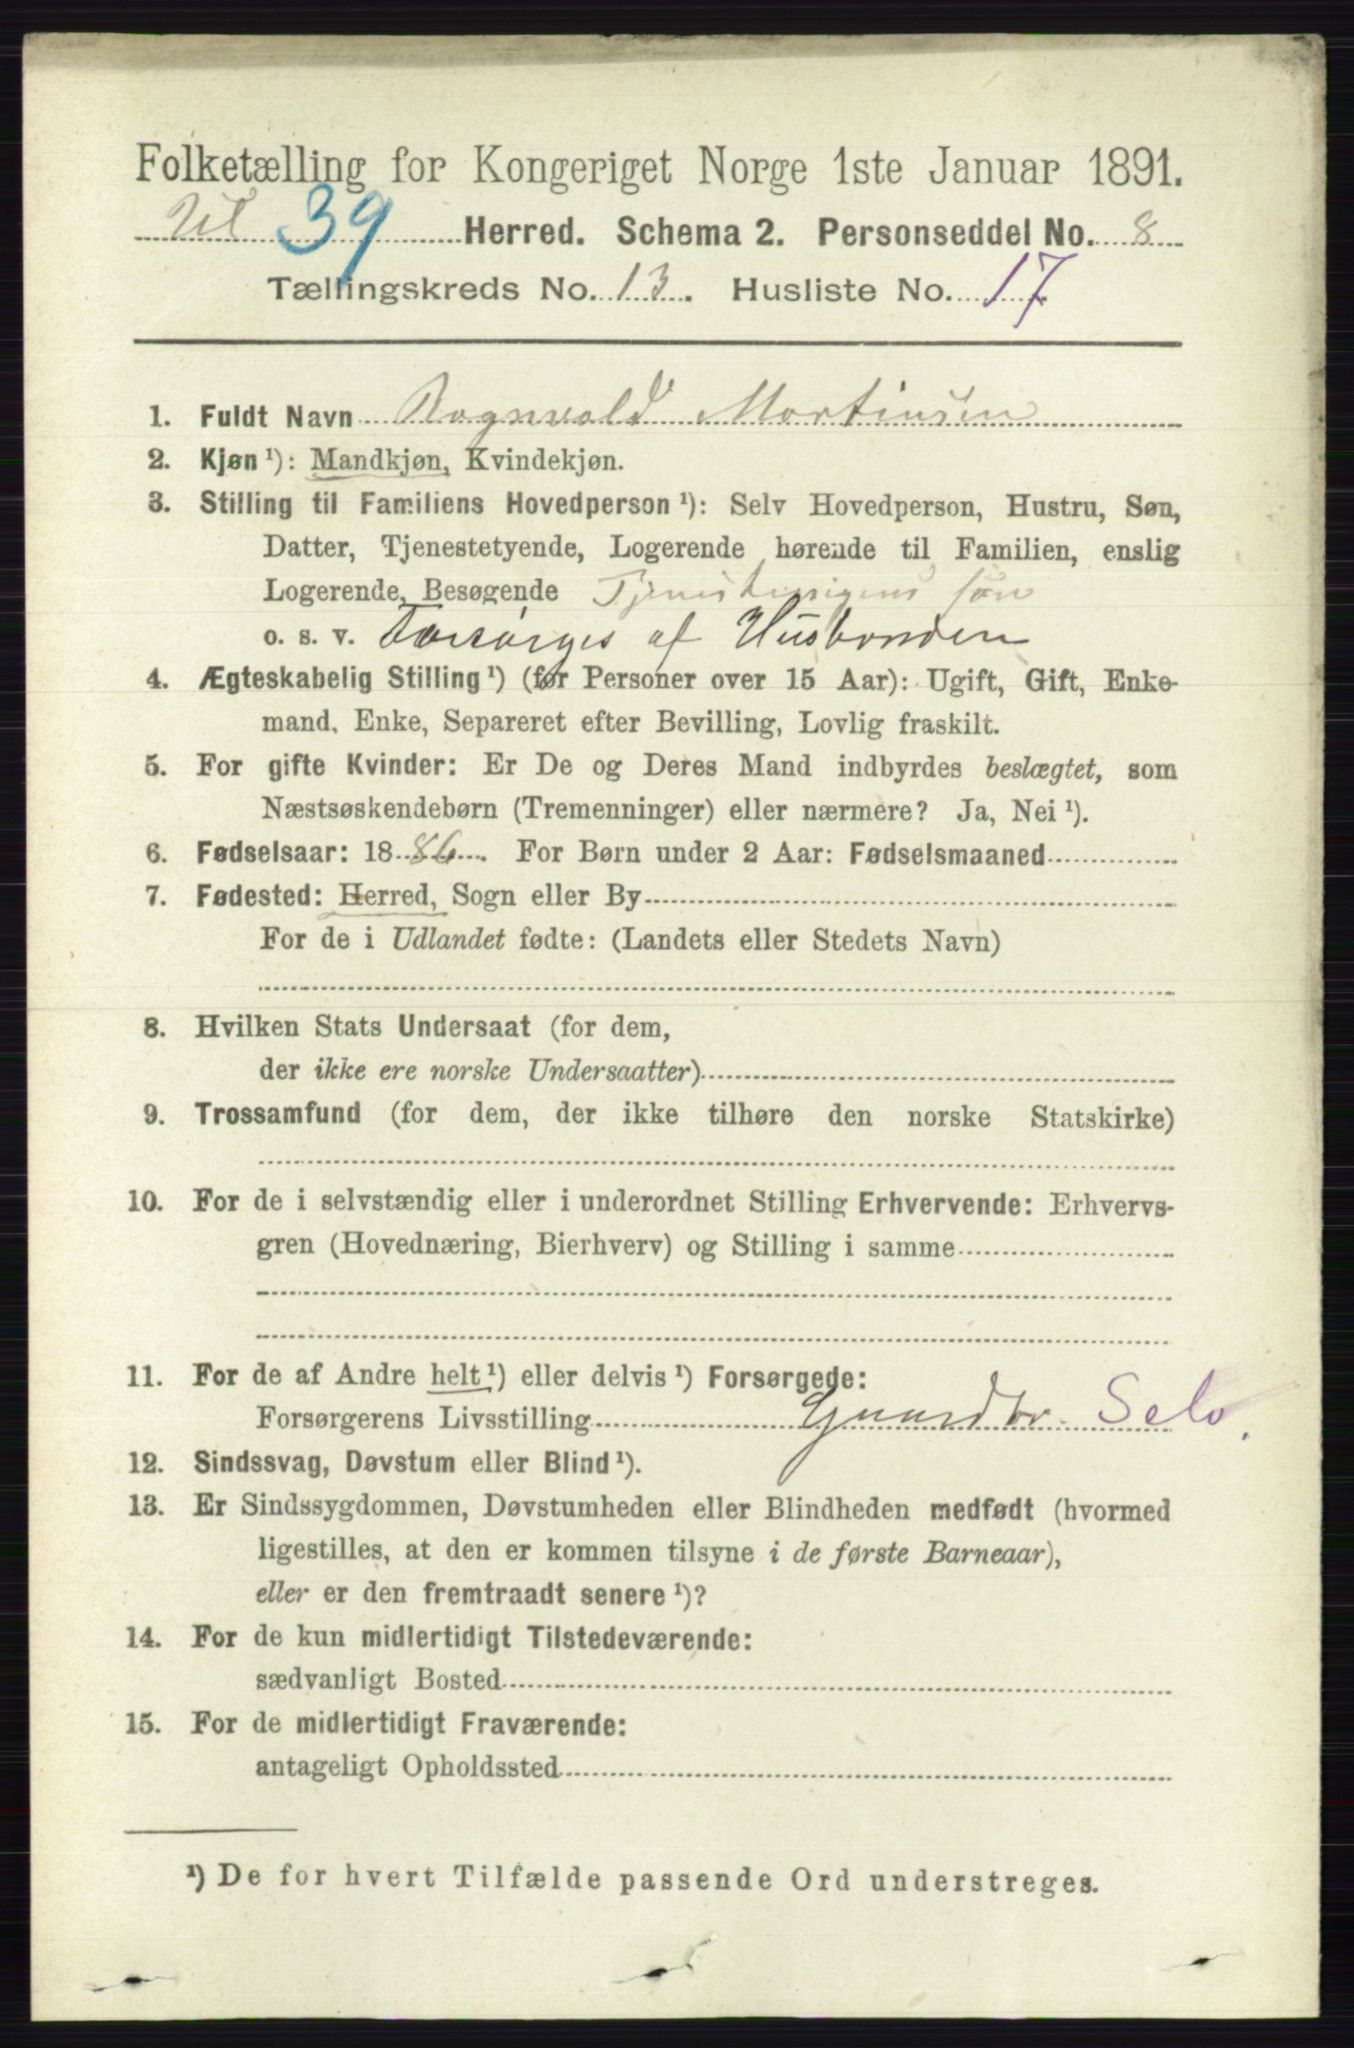 Folketælling for Kongeriget Norge 1ste Januar 1891.
39 Herred. Schema 2. Personseddel No. 8
Tællingskreds No. 13. Husliste No. 17
1. Fuldt Navn Ragnvald Martinsen
2. Kjøn ¹): Mandkjøn, Kvindekjøn.
3. Stilling til Familiens Hovedperson ¹): Selv Hovedperson, Hustru, Søn,
Datter, Tjenestetyende, Logerende hørende til Familien, enslig
Logerende, Besøgende Tjenestepigens søn
o. s. v. Forsørges af Husbonden
4. Ægteskabelig Stilling ¹) (for Personer over 15 Aar): Ugift, Gift, Enke-
mand, Enke, Separeret efter Bevilling, Lovlig fraskilt.
5. For gifte Kvinder: Er De og Deres Mand indbyrdes beslægtet, som
Næstsøskendebørn (Tremenninger) eller nærmere? Ja, Nei ¹).
6. Fødselsaar: 1886. For Børn under 2 Aar: Fødselsmaaned
7. Fødested: Herred, Sogn eller By
For de i Udlandet fødte: (Landets eller Stedets Navn)
8. Hvilken Stats Undersaat (for dem,
der ikke ere norske Undersaatter)
9. Trossamfund (for dem, der ikke tilhøre den norske Statskirke)
10. For de i selvstændig eller i underordnet Stilling Erhvervende: Erhvervs-
gren (Hovednæring, Bierhverv) og Stilling i samme
11. For de af Andre helt ¹) eller delvis ¹) Forsørgede:
Forsørgerens Livsstilling Gaardbr. Selv.
12. Sindssvag, Døvstum eller Blind ¹).
13. Er Sindssygdommen, Døvstumheden eller Blindheden medfødt (hvormed
ligestilles, at den er kommen tilsyne i de første Barneaar),
eller er den fremtraadt senere ¹)?
14. For de kun midlertidigt Tilstedeværende:
sædvanligt Bosted
15. For de midlertidigt Fraværende:
antageligt Opholdssted
¹) De for hvert Tilfælde passende Ord understreges.